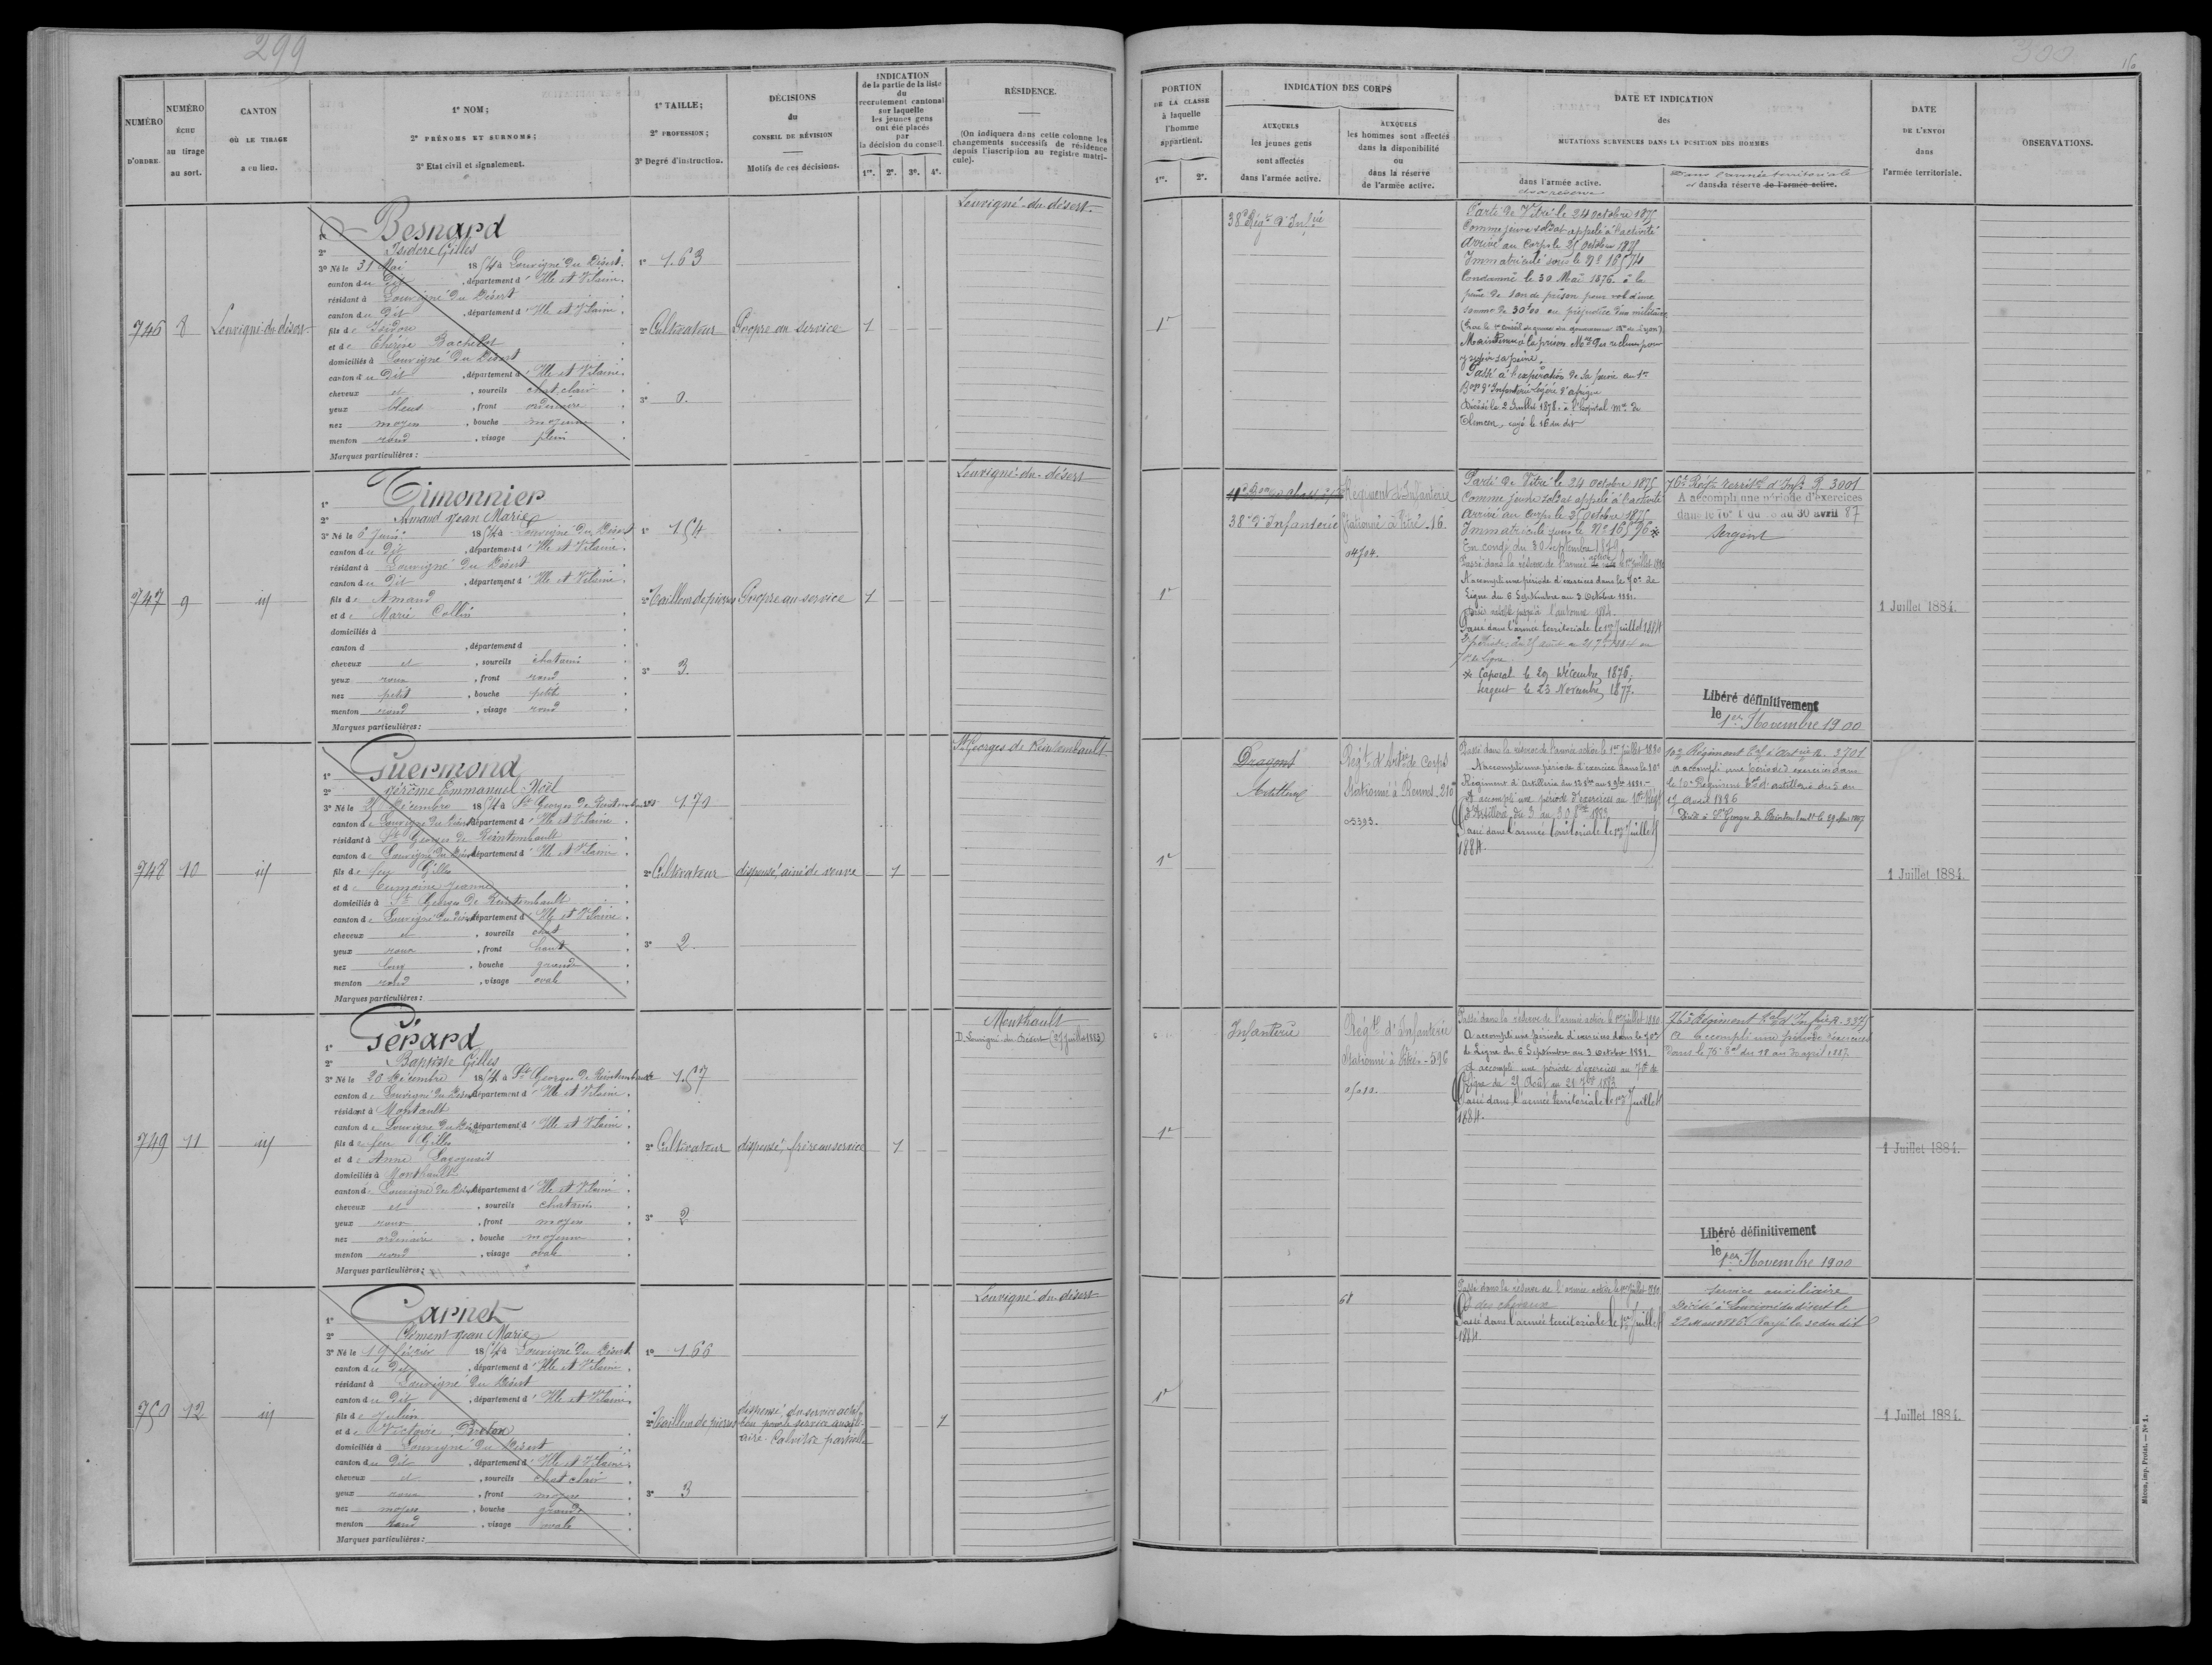 299
NUMÉRO D'ORDRE.
NUMÉRO ÉCHU au tirage au sort.
CANTON OÙ LE TIRAGE a eu lieu.
1° NOM;
2° PRÉNOMS ET SURNOMS;
3° Etat civil et signalement.
1° TAILLE;
2° PROFESSION;
3° Degré d'instruction.
DÉCISIONS du CONSEIL DE RÉVISION
Motifs de ces décisions.
INDICATION de la partie de la liste du recrutement cantonal sur laquelle les jeunes gens ont été placés par la décision du conseil.
1re. 2e. 3e. 4e.
RÉSIDENCE.
(On indiquera dans cette colonne les changements successifs de résidence depuis l'inscription au registre matricule).
746
8
Louvigné-du-désert
1° Besnard
2° Isidore Gilles
3° Né le 31 Mai 1854 à Louvigné du Désert.
canton du dit, département d'Ille et Vilaine.
résidant à Louvigné du Désert
canton du dit, département d'Ille et Vilaine.
fils de Isidore
et de Thérèse Bachelot
domiciliés à Louvigné du Désert
canton du dit, département d'Ille et Vilaine.
cheveux et, sourcils chat clair
yeux bleus, front ordinaire
nez moyen, bouche moyenne
menton rond, visage plein
Marques particulières :
1° 1.63
2° Cultivateur
3° 0.
Propre au service
1
Louvigné-du-désert.
747
9
id
1° Timonnier
2° Amand Jean Marie
3° Né le 6 Juin 1854 à Louvigné du Désert
canton du dit, département d'Ille et Vilaine.
résidant à Louvigné du Désert
canton du dit, département d'Ille et Vilaine.
fils de Amand
et de Marie Collin
domiciliés à
canton d, département d
cheveux et, sourcils chatains
yeux roux, front rond
nez petit, bouche petite
menton rond, visage rond
Marques particulières :
1° 1.54
2° Tailleur de pierres
3° 3.
Propre au service
1
Louvigné-du-désert
748
10
id
1° Guermond
2° Jérôme Emmanuel Noël
3° Né le 25 Décembre 1854 à St Georges de Reintembault
canton de Louvigné du Désert, département d'Ille et Vilaine.
résidant à St Georges de Reintembault
canton de Louvigné du Désert, département d'Ille et Vilaine.
fils de feu Gilles
et de Jeanne
domiciliés à St Georges de Reintembault
canton de Louvigné du Désert, département d'Ille et Vilaine.
cheveux et, sourcils chat
yeux roux, front haut
nez long, bouche grande
menton rond, visage ovale
Marques particulières :
1° 1.70
2° Cultivateur
3° 2.
dispensé, ainé de veuve
1
St Georges de Reintembault
749
11
id
1° Gérard
2° Baptiste Gilles
3° Né le 20 Décembre 1854 à St Georges de Reintembault
canton de Louvigné du Désert, département d'Ille et Vilaine.
résidant à Montault
canton de Louvigné du Désert, département d'Ille et Vilaine.
fils de feu Gilles
et de Anne
domiciliés à Monthault
canton de Louvigné du Désert, département d'Ille et Vilaine.
cheveux et, sourcils chatains
yeux roux, front moyen
nez ordinaire, bouche moyenne
menton rond, visage ovale
Marques particulières :
1° 1.57
2° Cultivateur
3° 2
dispensé, frère au service
1
Monthault
D. Louvigné-du-Désert (27 Juillet 1883)
750
12
id
1° Carnet
2° Clément Jean Marie
3° Né le 19 février 1854 à Louvigné du Désert
canton du dit, département d'Ille et Vilaine.
résidant à Louvigné du Désert
canton du dit, département d'Ille et Vilaine.
fils de Julien
et de Victoire Breton
domiciliés à Louvigné du Désert
canton du dit, département d'Ille et Vilaine.
cheveux et, sourcils chat clair
yeux roux, front moyen
nez moyen, bouche grande
menton rond, visage ovale
Marques particulières :
1° 1.66
2° Tailleur de pierres
3° 3
dispensé du service actif
bon pour le service auxili-
aire. Calvitie partielle
1
Louvigné-du-désert
300
PORTION DE LA CLASSE à laquelle l'homme appartient.
1re. 2e.
INDICATION DES CORPS
AUXQUELS les jeunes gens sont affectés dans l'armée active.
AUXQUELS les hommes sont affectés dans la disponibilité ou dans la réserve de l'armée active.
DATE ET INDICATION des MUTATIONS SURVENUES DANS LA POSITION DES HOMMES
dans l'armée active.
et la réserve
Dans l'armée territoriale
et dans la réserve de l'armée active.
DATE DE L'ENVOI dans l'armée territoriale.
OBSERVATIONS.
1e
38e Régt d'Infie
Parti de Vitré le 24 octobre 1875
Comme jeune soldat appelé à l'activité
Arrivé au Corps le 25 octobre 1875
Immatriculé sous le No 16574
Condamné le 30 Mai 1876 à la
peine de 1 an de prison pour vol d'une
somme de 30f00 au préjudice d'un militaire
Maintenu à la prison Mre pour
y subir sa peine.
Passé à l'expiration de sa peine au 1er
Bon d'Infanterie légère d'afrique
Décédé le 2 Juillet 1878 à l'hôpital Mre de
Tlemcen, rayé le 16 du dit
1e
38e d'Infanterie
Régiment d'Infanterie
stationné à Vitré. 16.
04704.
Parti de Vitré le 24 octobre 1875
Comme jeune soldat appelé à l'activité
Arrivé au corps le 25 octobre 1875
Immatriculé sous le No 16576 *
En congé du 30 septembre 1879
Passé dans la réserve de l'armée active le 1er Juillet 1880
A accompli une période d'exercices dans le 70e de
Ligne du 6 Septembre au 3 Octobre 1881.
Passé dans l'armée territoriale le 1er Juillet 1884
* Caporal le 29 Décembre 1876,
Sergent le 23 Novembre 1877.
76e Régt territal d'Infie R. 3001
A accompli une période d'exercices
dans le 76e T du au 30 avril 87
Sergent
Libéré définitivement
le 1er Novembre 1900
1 Juillet 1884.
1e
Dragons
Artillerie
Régt d'Artie de Corps
Stationné à Rennes. 210
05393.
Passé dans la réserve de l'armée active le 1er Juillet 1880
A accompli une période d'exercice dans le 10e
Régiment d'Artillerie du
A accompli une période d'exercices au 10e Régt
d'Artillerie du 3 au 30 1883.
Passé dans l'armée territoriale le 1er Juillet
1884.
10e Régiment tal d'Artie R. 3701
a accompli une période d'exercices dans
le 10e Régiment tal d'artillerie du 5 au
17 avril 1886
Décédé à St Georges de Reintembault le
1 Juillet 1884.
1e
Infanterie
Régt d'Infanterie
Stationné à Vitré. - 596
Passé dans la réserve de l'armée active le 1er Juillet 1880
A accompli une période d'exercices dans le 70e
de Ligne du 6 Septembre au 3 Octobre 1881.
A accompli une période d'exercices au 70e de
Ligne du 25 Août au 21 7bre 1883
Passé dans l'armée territoriale le 1er Juillet
1884.
76e Régiment tal d'Infie R. 3375
A accompli une période d'exercices
dans le 76e tal du 18 au 30 avril 1887.
Libéré définitivement
le 1er Novembre 1900
1 Juillet 1884.
1e
68
Passé dans la réserve de l'armée active le 1er Juillet 1880
des chevaux
Passé dans l'armée territoriale le 1er Juillet
1884.
Service auxiliaire
Décédé à Louvigné du désert le
22 Mars 1886. Rayé le 30 du dit
1 Juillet 1884.
Mâcon, imp. Protat. — No 1.